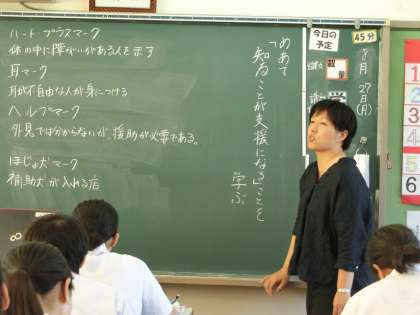 ハート・プラスマーク
体の中に障がいがある人を示す
耳マーク
耳が不自由な人が身につける
ヘルプマーク
外見では分からないが、援助が必要である。
ほじょ犬マーク
補助犬が入れる店
めあて
「知ることが支援になる」ことを
学ぶ
今日の
予定
45分
月27日(月)
1
2
3
4
5
6